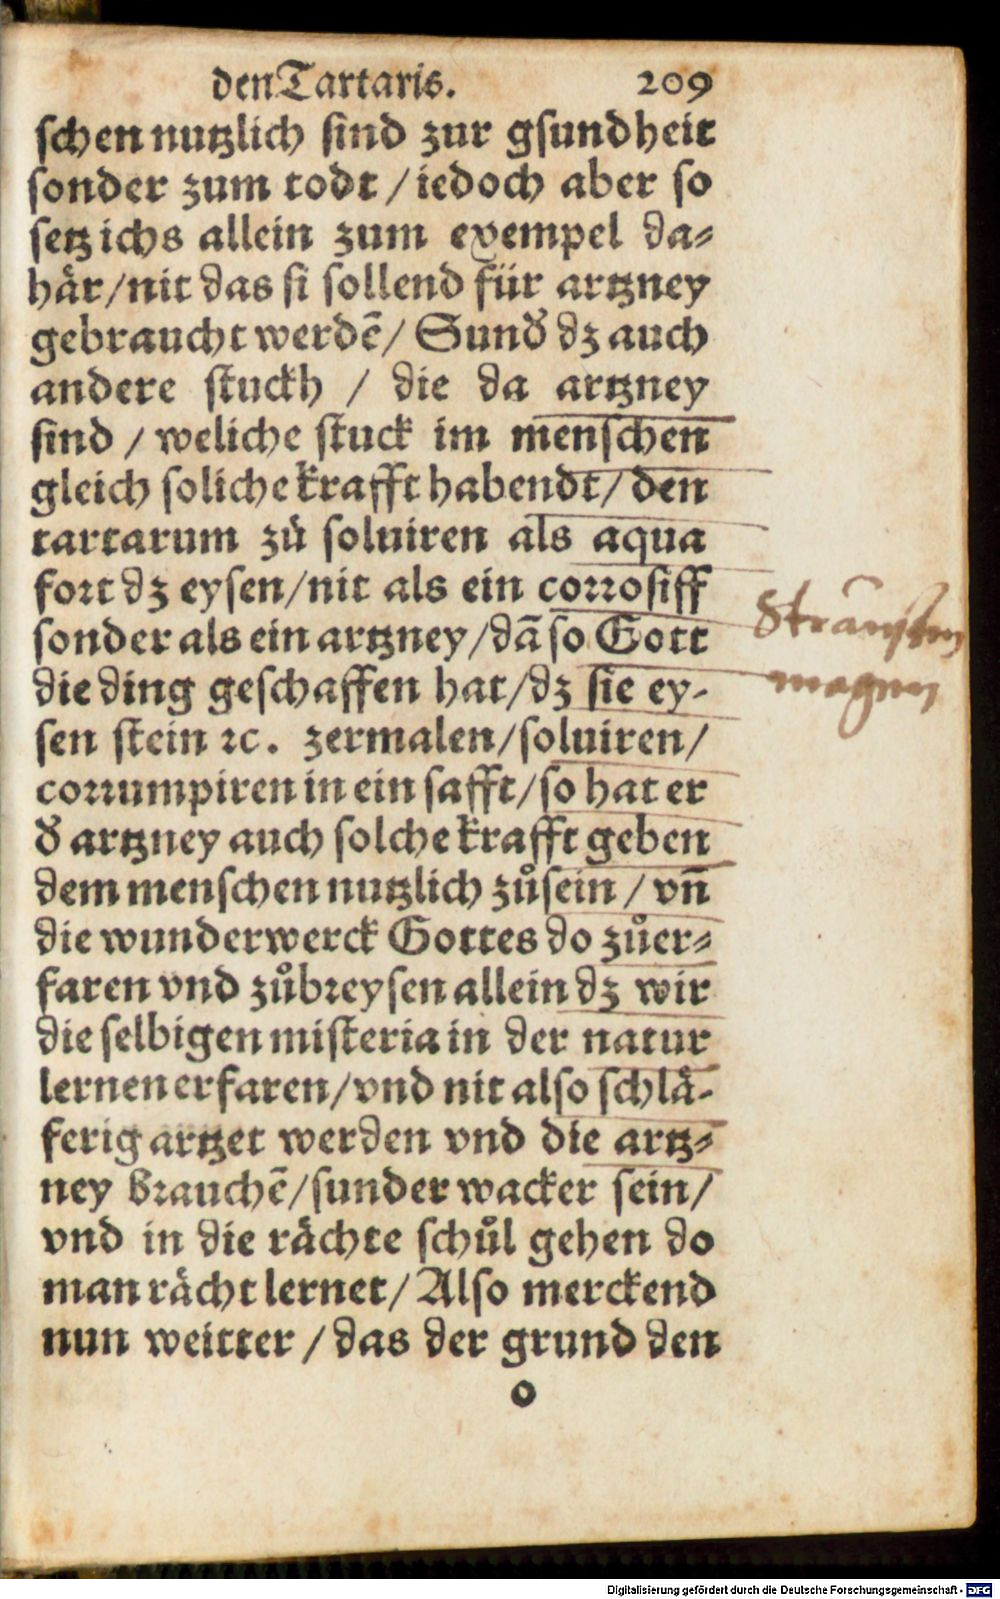 den Tartaris. 209
schen nutzlich sind zur gsundheit
sonder zum todt / iedoch aber so
setz ichs allein zum exempel da⸗
här / nit das si sollend für artzney
gebraucht werdē / Sund̕ dz auch
andere stuckh / die da artzney
sind / weliche stuck im menschen
gleich soliche krafft habendt / den
tartarum zů soluiren als aqua
fort dz eysen / nit als ein corrosiff
sonder als ein artzney / dā so Gott
die ding geschaffen hat / dz sie ey-
sen stein ꝛc. zermalen / soluiren /
corrumpiren in ein safft / so hat er
d̕ artzney auch solche krafft geben
dem menschen nutzlich zůsein / vn̄
die wunderwerck Gottes do zůer⸗
faren vnd zůbreysen allein dz wir
die selbigen misteria in der natur
lernen erfaren / vnd nit also schlä-
ferig artzet werden vnd die artz⸗
ney brauchē / sunder wacker sein /
vnd in die rächte schůl gehen do
man rächt lernet / Also merckend
nun weitter / das der grund den
o
Digitalisierung gefördert durch die Deutsche Forschungsgemeinschaft - DFG